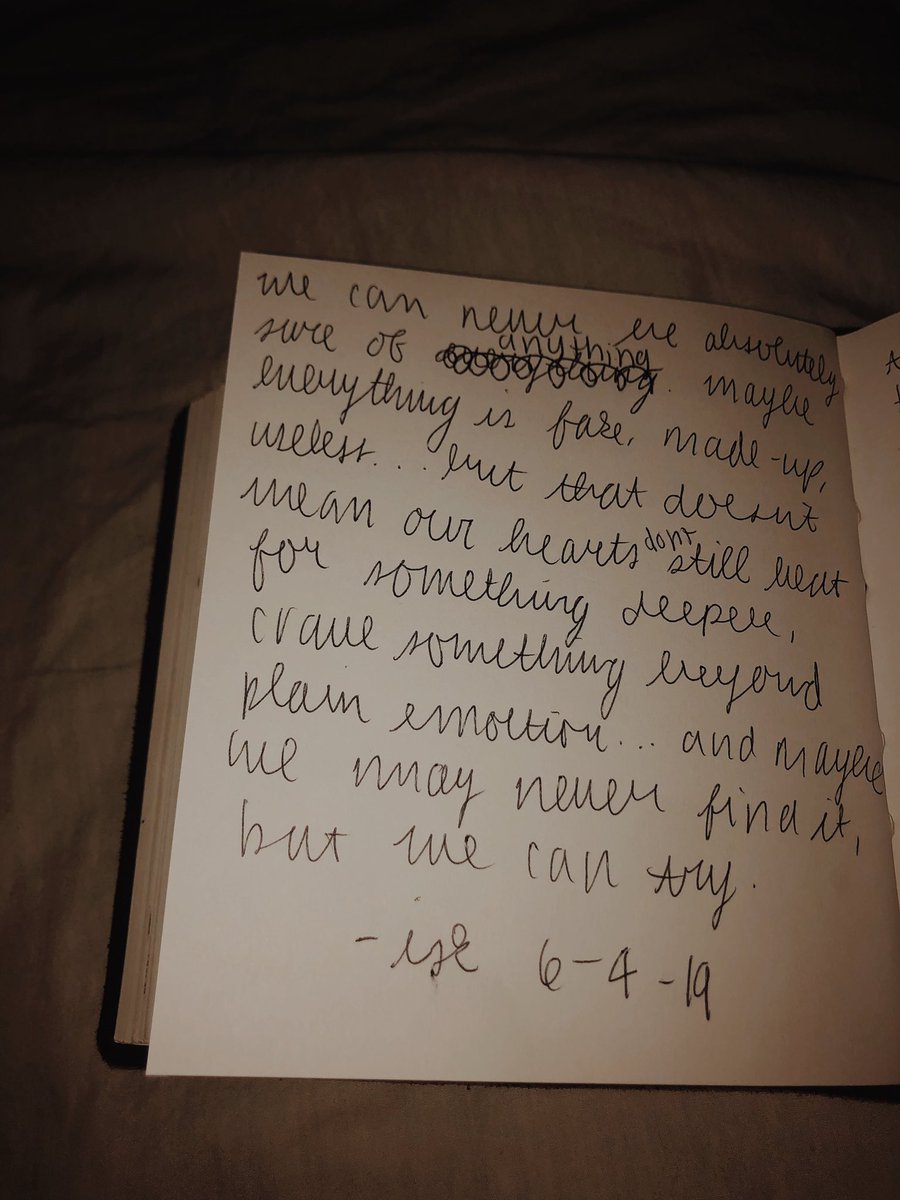 we can never be absolutely
sure of anything. maybe
everything is fake, made-up,
useless... but that doesn't
mean our hearts don't still beat
for something deeper,
crave something beyond
plain emotion... and maybe
we may never find it,
but we can try.
6-4-19